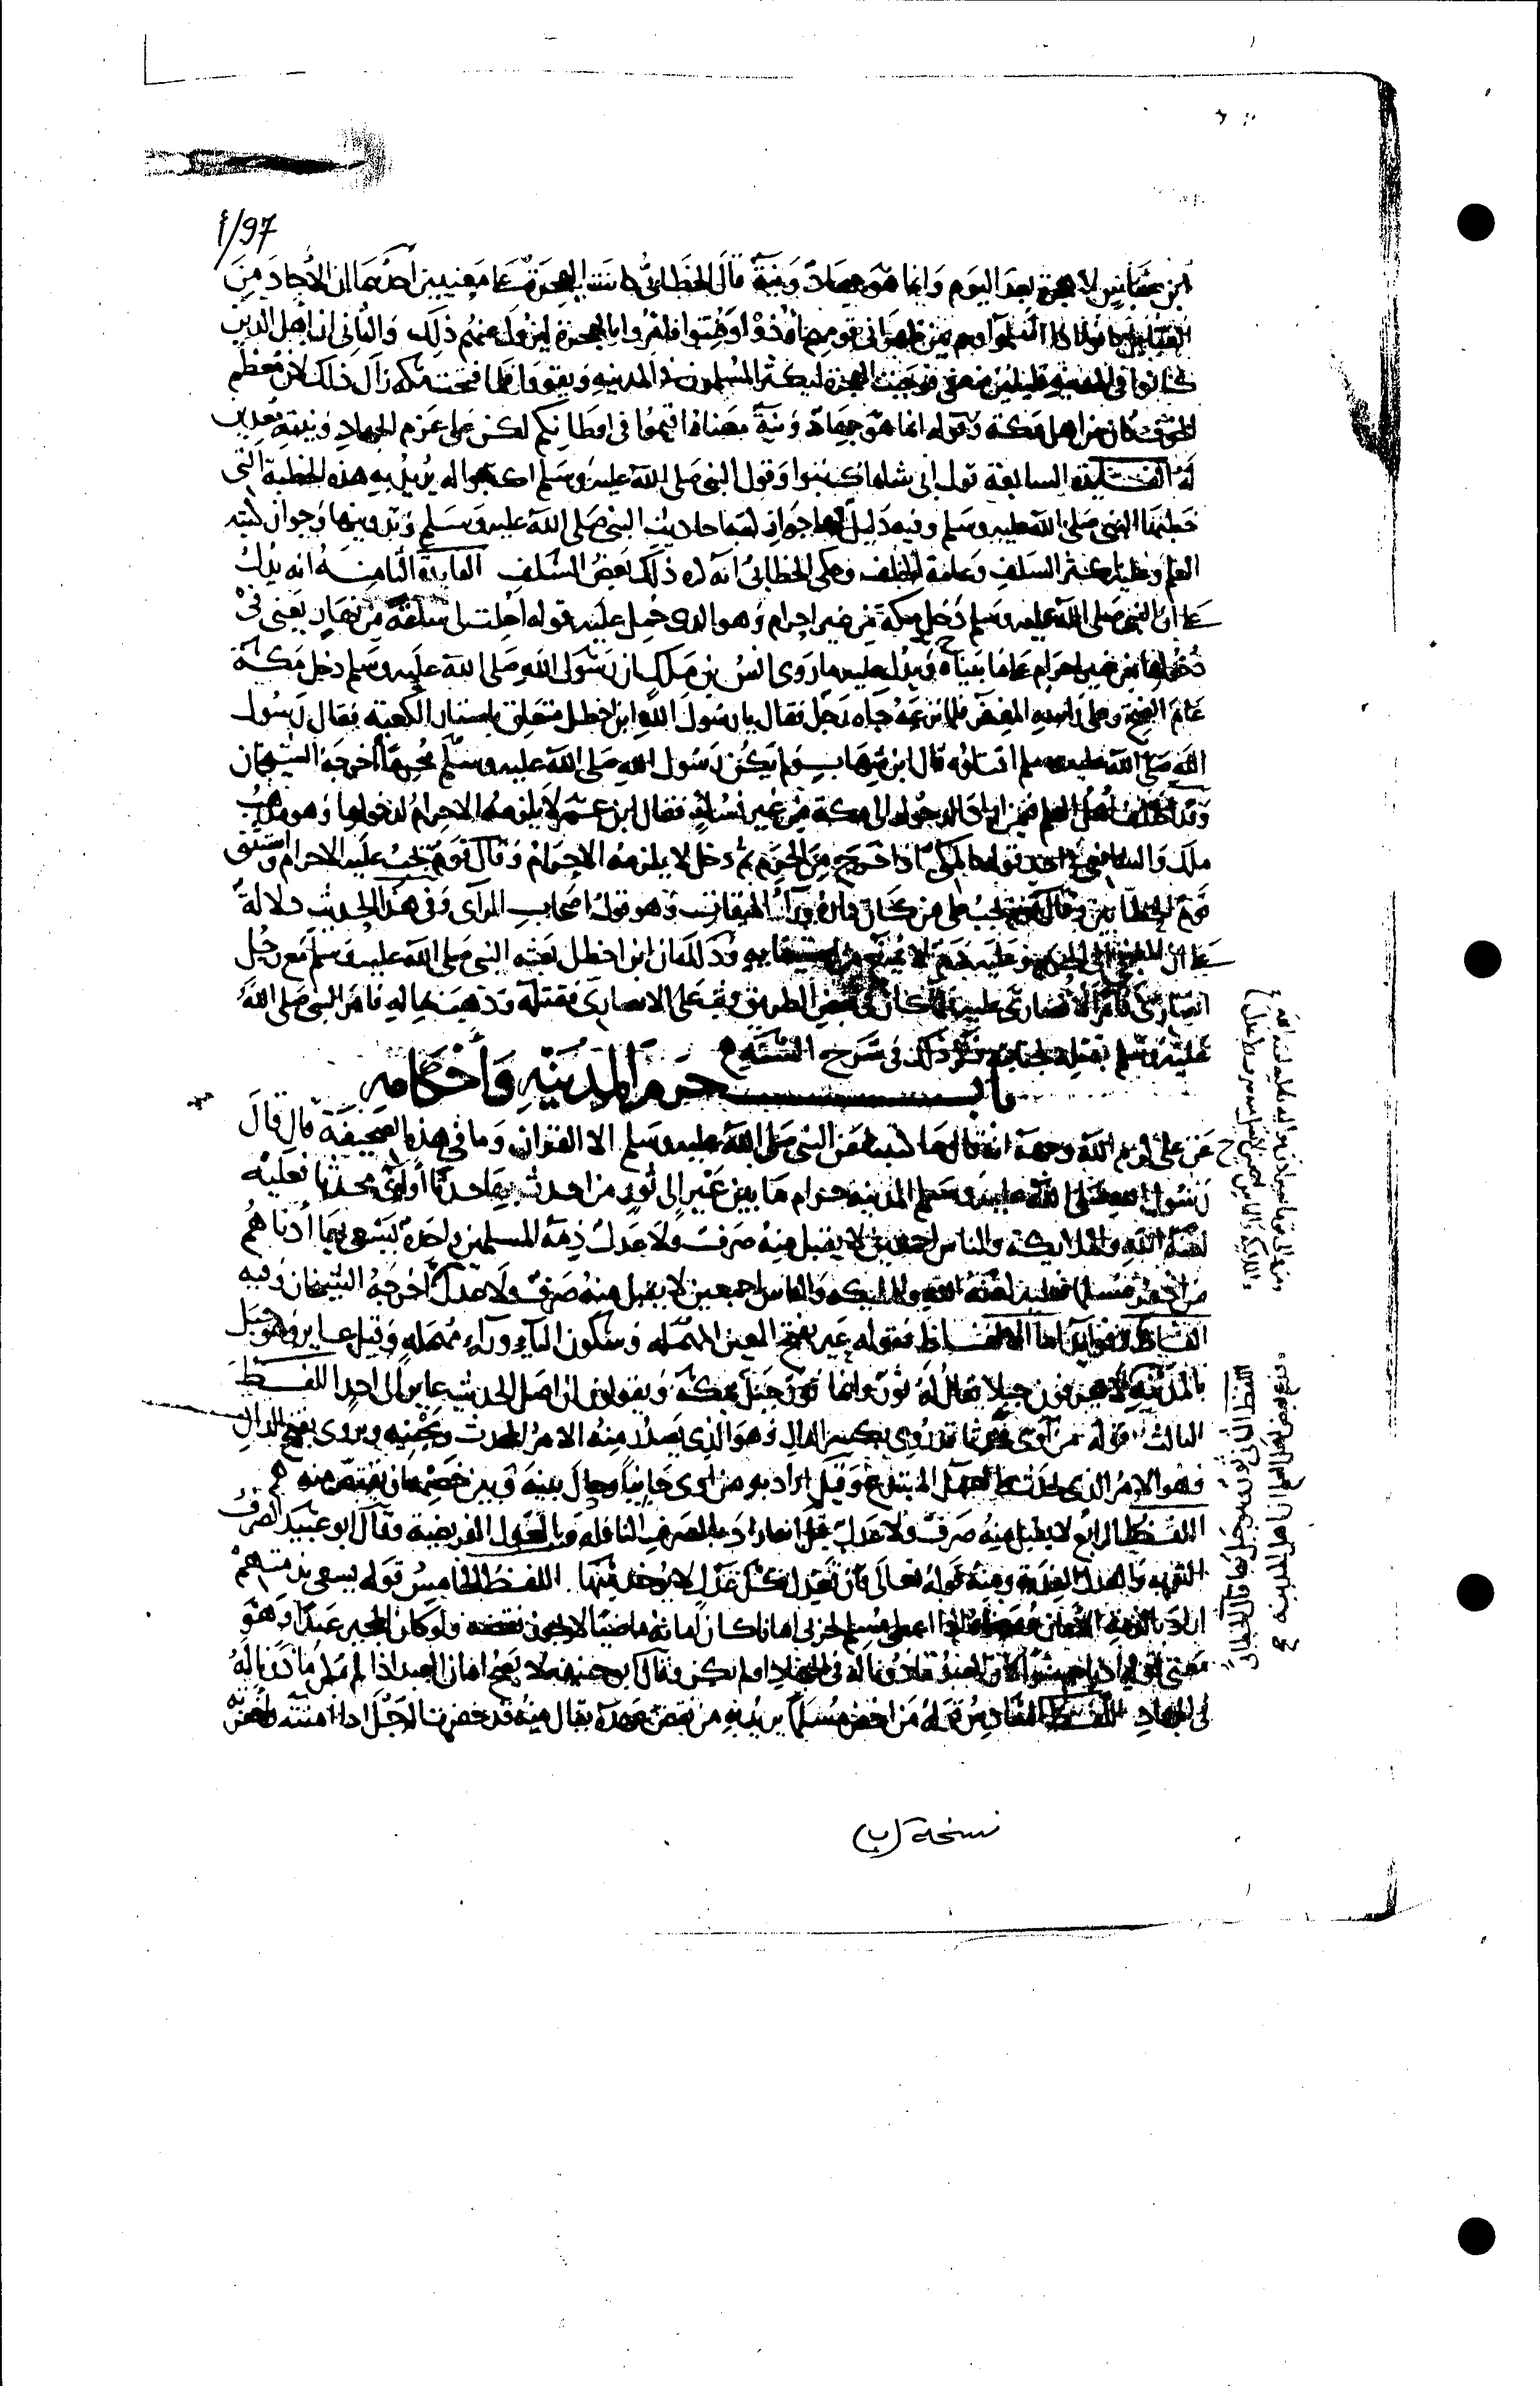 ٤/97
ابن عباس لا هجرة بعد اليوم وانما هو جهاد ونية قال الخطابي كانت الهجرة على معنيين احدهما ان الآحاد من
القبايل كانوا اذا اسلموا وهم بين ظهراني قومهم أوذوا وفتنوا فامروا بالهجرة ليزول عنهم ذلك والثاني ان اهل الدين
كانوا في المدينة قليلين فوجبت الهجرة ليكثر المسلمون في المدينة ويقووا فلما فتحت مكه زال ذلك لان معظم
الخوف كان من اهل مكة وقوله انما هو جهاد ونية معناه اقيموا في اوطانكم لكن على عزم الجهاد ونية
له الفايدة السابعة قول ابي شاه اكتبوا وقول النبي صلى الله عليه وسلم اكتبوا له يريد به هذه الخطبة التي
خطبها النبي صلى الله عليه وسلم وفيه دليل على جواز احاديث النبي صلى الله عليه وسلم وتدوينها وجواز كتبة
العلم وعليه اكثر السلف وعامة الخلف وحكى الخطابي انه كره ذلك بعض السلف الفايدة الثامنة انه يدل
على ان النبي صلى الله عليه وسلم دخل مكة من غير احرام وهو الذي حمل عليه قوله احلت لي ساعة من نهار يعني في
دخولها من غير احرام على ما بيناه ويدل عليه ما روى انس بن ملك ان رسول الله صلى الله عليه وسلم دخل مكة
عام الفتح وعلى راسه المغفر فلما نزعه جاه رجل فقال يا رسول الله ابن خطل متعلق باستار الكعبة فقال رسول
الله صلى الله عليه وسلم اقتلوه قال ابن شهاب ولم يكن رسول الله صلى الله عليه وسلم محرما أخرجه الشيخان
وقد اختلف اهل العلم فيمن اراد الدخول الى مكة من غير نسك فقال ابن عمر لا يلزمه الاحرام لدخولها وهو مذهب
ملك والشافعي في احد قوله المكي اذا خرج من الحرم ثم دخل لا يلزمه الاحرام وقال قوم يجب عليه الاحرام واستثنى
قوم الحطابين وقال قوم يجب على من كان داره ورآء الميقات وهو قول اصحاب الرآى وفي هذا الحديث دلالة
على ان الملتجئ الى الحرم وعليه وذلك ان ابن خطل بعثه النبي صلى الله عليه وسلم مع رجل
انصاري وامر الأنصاري عليه فلما كان في بعض الطريق وثب على الانصاري فقتله وذهب بماله فامر النبي صلى الله
عليه وسلم بقتله ذكر ذلك في شرح السنة
باب حرم المدينة وأحكامه
عن علي كرم الله وجهه انه قال ما كتبنا عن النبي صلى الله عليه وسلم الا القرآن وما في هذه الصحيفة قال قال
رسول الله صلى الله عليه وسلم المدينة حرام ما بين عير الى ثور من احدث فيها حدثا أو آوى محدثا فعليه
لعنة الله والملايكة والناس اجمعين لا يقبل منه صرف ولا عدل ذمة المسلمين واحدة يسعى بها أدناهم
من اخفر مسلما فعليه لعنة الله والمليكه والناس اجمعين لا يقبل منه صرف ولا عدل أخرجه الشيخان وفيه
الفاظ وفوايد اما الالفاظ فقوله عير بفتح العين المهمله وسكون اليآء ورآء مهملة وقيل عاير وهو جبل
بالمدينة لا يعرفون جبلا يقال له ثور وانما ثور جبل بمكة ويقولون ان اصل الحديث عاير الى احد اللفظ
الثالث قوله من آوى محدثا قد روي بكسر الدال وهو الذي يصدر منه الامر المحدث ويجنيه ويروى بفتح الدال
وهو الامر الذي العمل المبتدع وقيل اراد به من اوى جانيا وحال بينه وبين خصمه ان يقتص منه
اللفظ الرابع لا يقبل منه صرف ولا عدل قيل انه اراد بالصرف النافله وبالعدل الفريضة وقال ابو عبيد الصرف
التوبه والعدل الفدية ومنه قوله تعالى وان تعدل كل عدل لا يؤخذ منها اللفظ الخامس قوله يسعى بذمتهم
اراد بالذمة الأمان اذا اعطى مسلم لحربي امانا كان امانه ماضيا لا يجوز نقضه ولو كان المجير عبدا وهو
معنى قوله ادناهم سوا كان العبد ماذونا له في الجهاد او لم يكن وقال ابو حنيفه لا يصح امان العبد اذا لم يكن ماذونا له
في الجهاد اللفظ السادس قوله من اخفر مسلما يريد به من نقض عهده يقال منه قد خفرت الرجل اذا امنته واخفرته
اللفظ الثاني ثور وهو جبل
قال الخطابي
نسخة (ب)